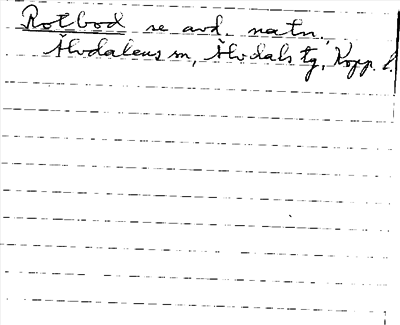 Rotbod se avd. natn.,
Älvdalens sn, Älvdals tg, Kopp. l.